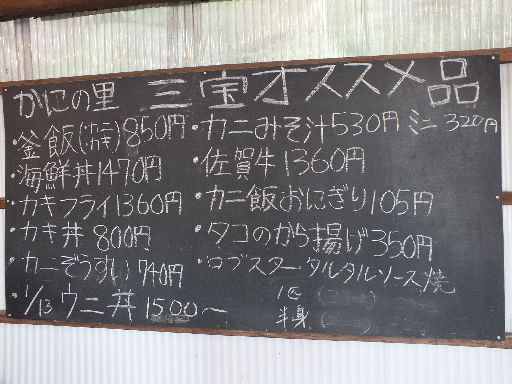 かにの里 三宝オススメ品
・釜飯(カニ・カキ)850円
・海鮮丼1470円
・カキフライ1360円
・カキ丼 800円
・カニぞうすい740円
・1/13 ウニ丼 1500～
・カニみそ汁530円 ミニ 320円
・佐賀牛1360円
・カニ飯おにぎり105円
・タコのから揚げ350円
・ロブスタータルタルソース焼
1匹
半身